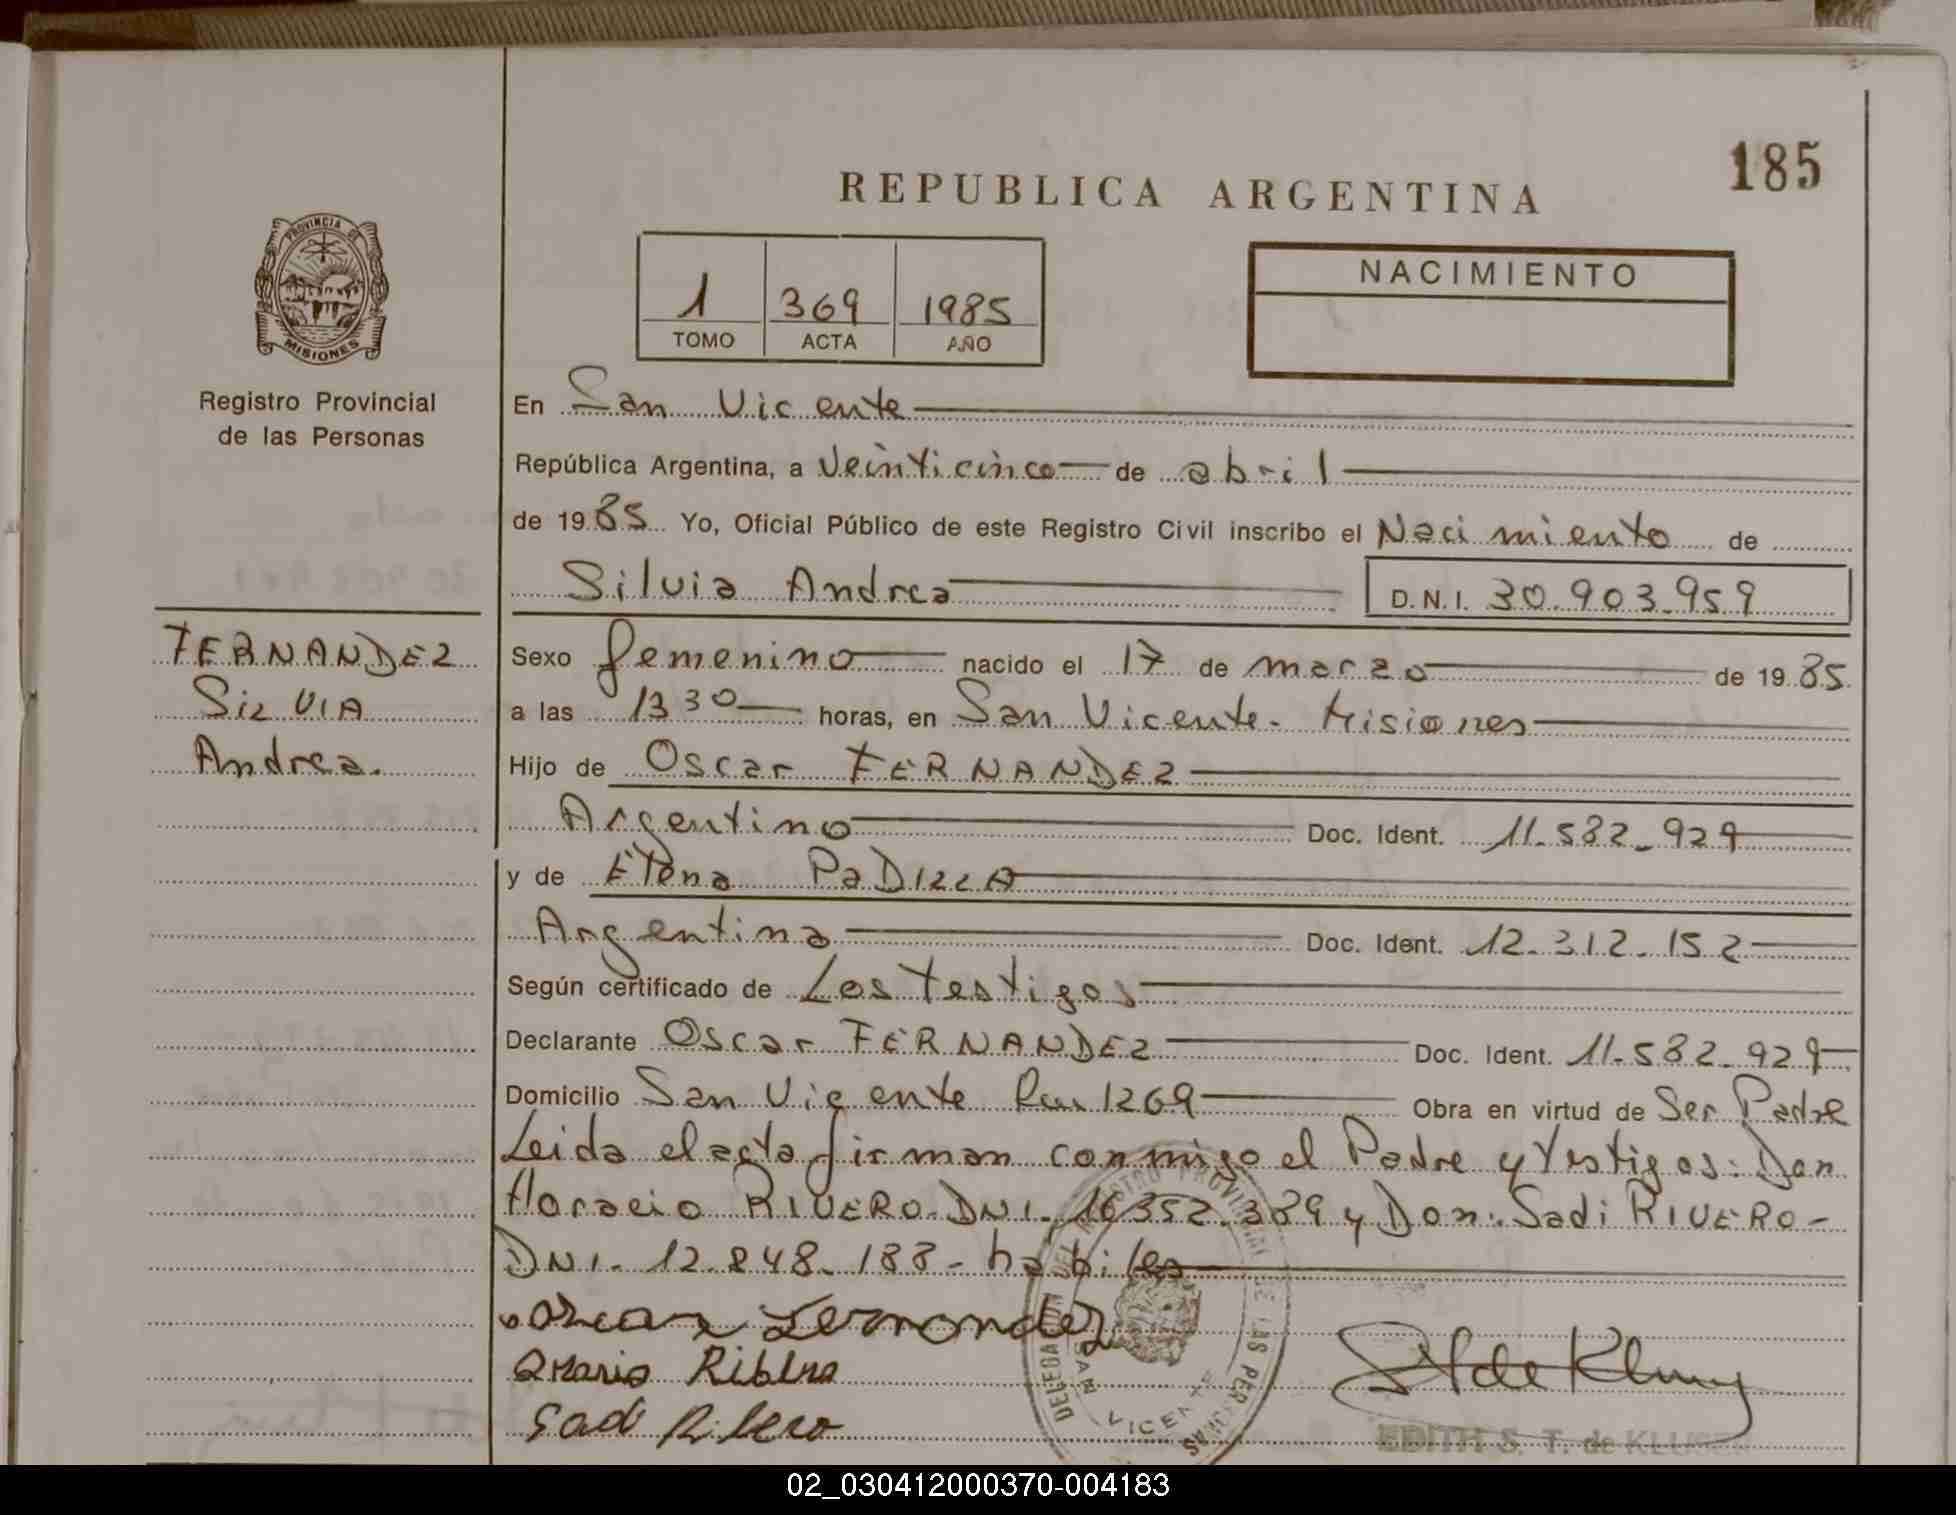 185
REPUBLICA ARGENTINA
PROVINCIA DE
MISIONES
Registro Provincial
de las Personas
1 369 1985
TOMO ACTA AÑO
NACIMIENTO
En San Vicente
República Argentina, a Veinticinco de abril
de 1985 Yo, Oficial Público de este Registro Civil inscribo el Nacimiento de
Silvia Andrea D.N.I. 30.903.959
FERNANDEZ
SilVIA
Andrea.
Sexo femenino nacido el 17 de marzo de 1985
a las 13 30 horas, en San Vicente. Misiones
Hijo de Oscar FERNANDEZ
Argentino Doc. Ident. 11.582.929
y de Elena PaDILLA
Argentina Doc. Ident. 12.312.152
Según certificado de Los testigos
Declarante Oscar FERNANDEZ Doc. Ident. 11.582.929
Domicilio San Vicente 1269 Obra en virtud de Ser Padre
Leida el acta firman conmigo el Padre y testigos: Don
Horacio RIVERO. DNI. 16.352.389 y Don. Sadi RIVERO-
DNI. 12.848.188- habiles
Oscar Fernandez
Sadi Ribero
DELEGACION DEL REGISTRO PROVINCIAL DE LAS PERSONAS
SAN VICENTE
EDITH S. T. de KLUSEN
02_030412000370-004183